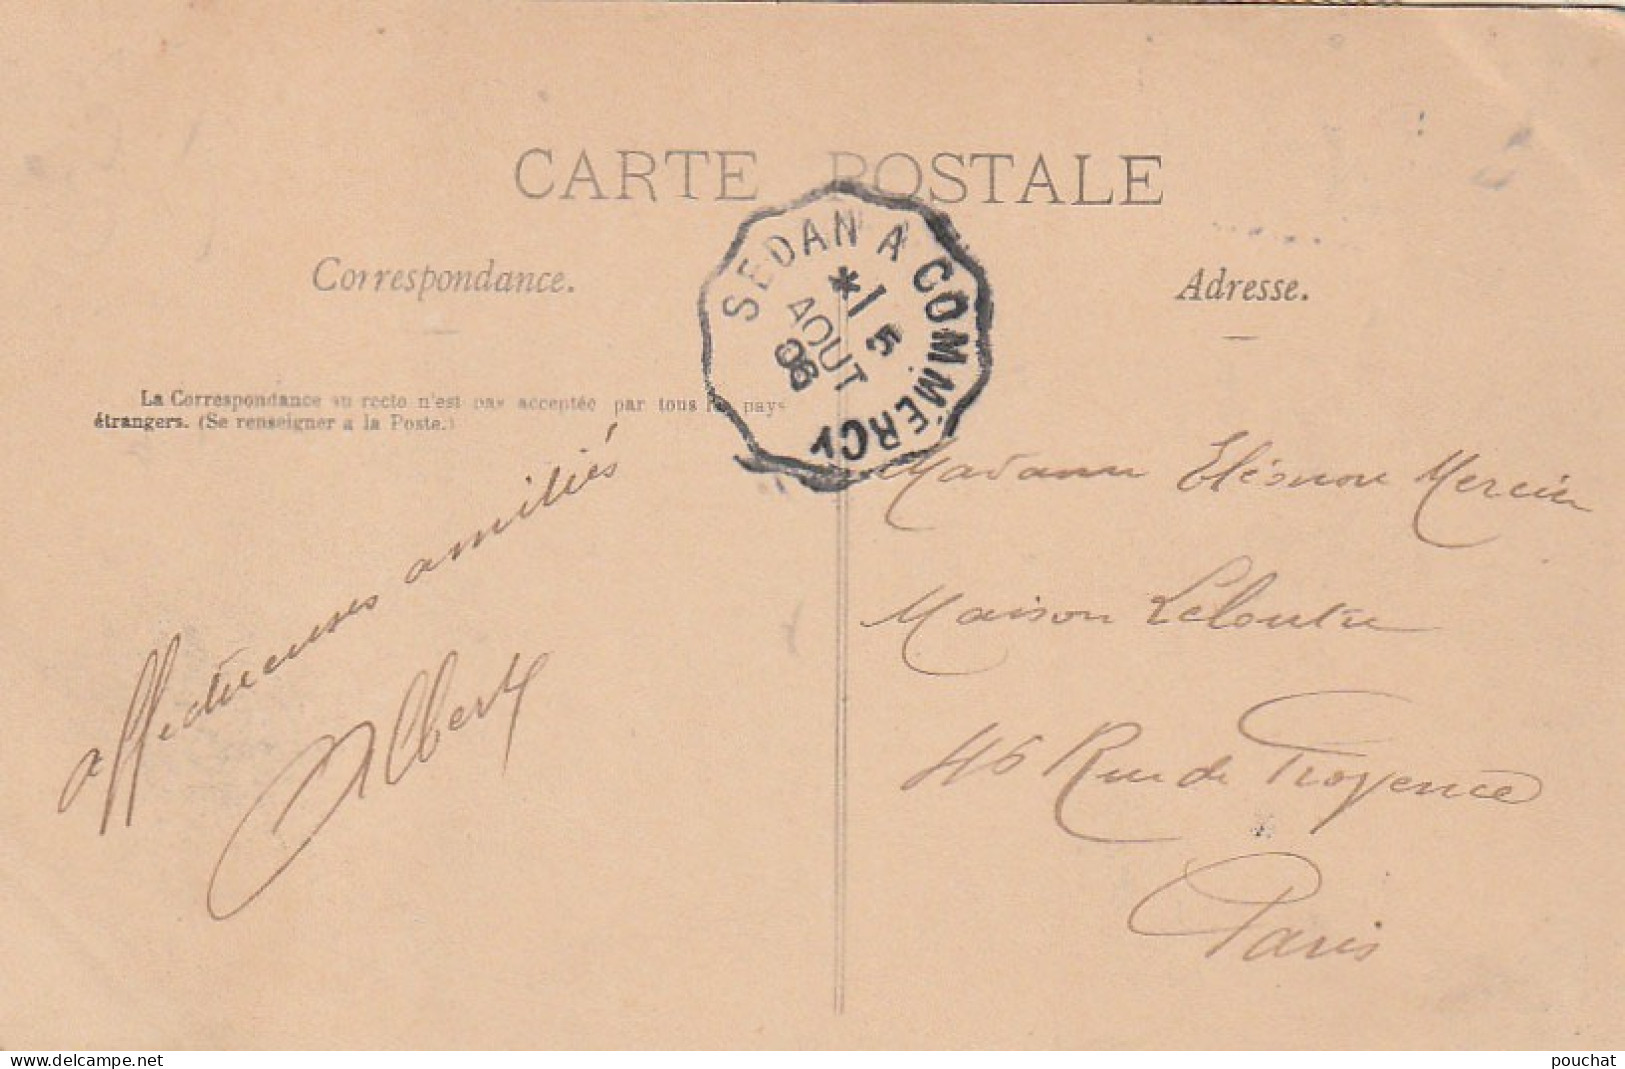 CARTE POSTALE
Correspondance.
Adresse.
La Correspondance au recto n'est pas acceptée par tous les pays
étrangers. (Se renseigner a la Poste.)
SEDAN A COMMERCY
* 1
5
AOUT
06
affectueuses amitiés
Albert
Madame Eléonor Mercier
Maison Leloutre
46 Rue de Provence
Paris
www.delcampe.net
pouchat